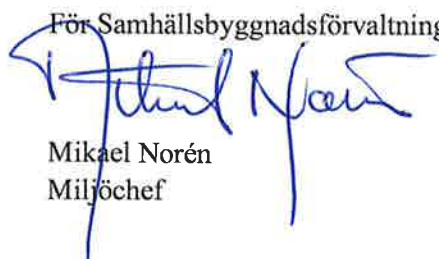 För Samhällsbyggnadsförvaltning
Mikael Norén
Miljöchef